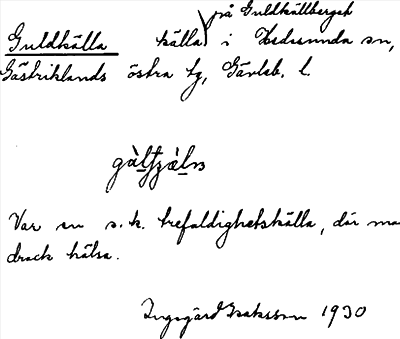 på Guldkällberget
Guldkälla källa i Hedesunda sn,
Gästriklands östra tg, Gävleb. l.
Var en s.k. trefaldighetskälla, där ma
drack hälsa.
Ingegärd Isaksson 1930